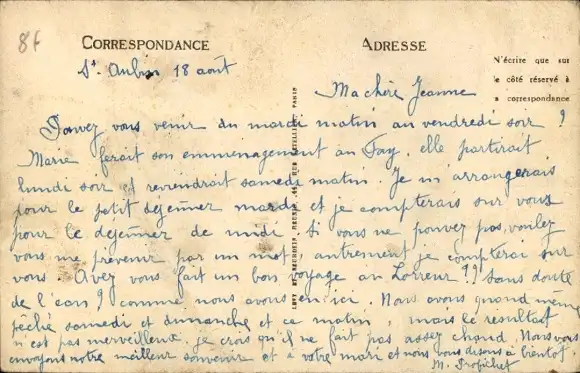 8f
CORRESPONDANCE
ADRESSE
N'écrire que sur
le côté réservé à
la correspondance
St Aubin 18 août
Ma chère Jeanne
Pouvez vous venir du mardi matin au vendredi soir ?
Marie ferait son emmenagement au Fay, elle partirait
lundi soir et reviendrait samedi matin. Je m'arrangerais
pour le petit déjeuner mardi et je compterais sur vous
pour le déjeuner de midi. Si vous ne pouvez pas, voulez
vous me prévenir par un mot, autrement je compterai sur
vous. Avez vous fait un bon voyage au ? Sans doute
de l'eau ? comme nous avons eu ici. Nous avons quand même
pêché samedi et dimanche et ce matin, mais le resultat
n'est pas merveilleux, je crois qu'il ne fait pas assez chaud. Nous vous
envoyons notre meilleur souvenir et à votre mari et nous vous disons à bientôt.
M.
LEVY ET NEURDEIN REUNIS, 44, RUE LETELLIER, PARIS